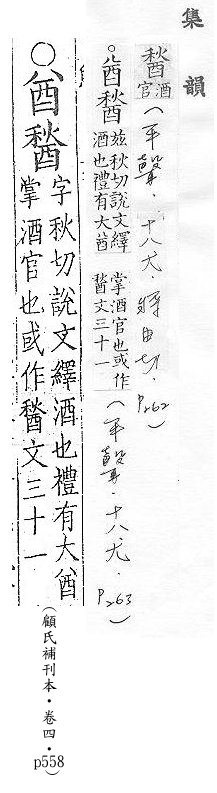 集韻
𨢡酒官(平聲.十八尤.將由切.P262)
。酋𨢡茲秋切說文繹
酒也禮有大酋
掌酒官也或作
𨡓文三十一(平聲.十八尤.P263)
○酋𨢡字秋切說文繹酒也禮有大酋
掌酒官也或作𨡓文三十一
(顧氏補刊本.卷四.p558)